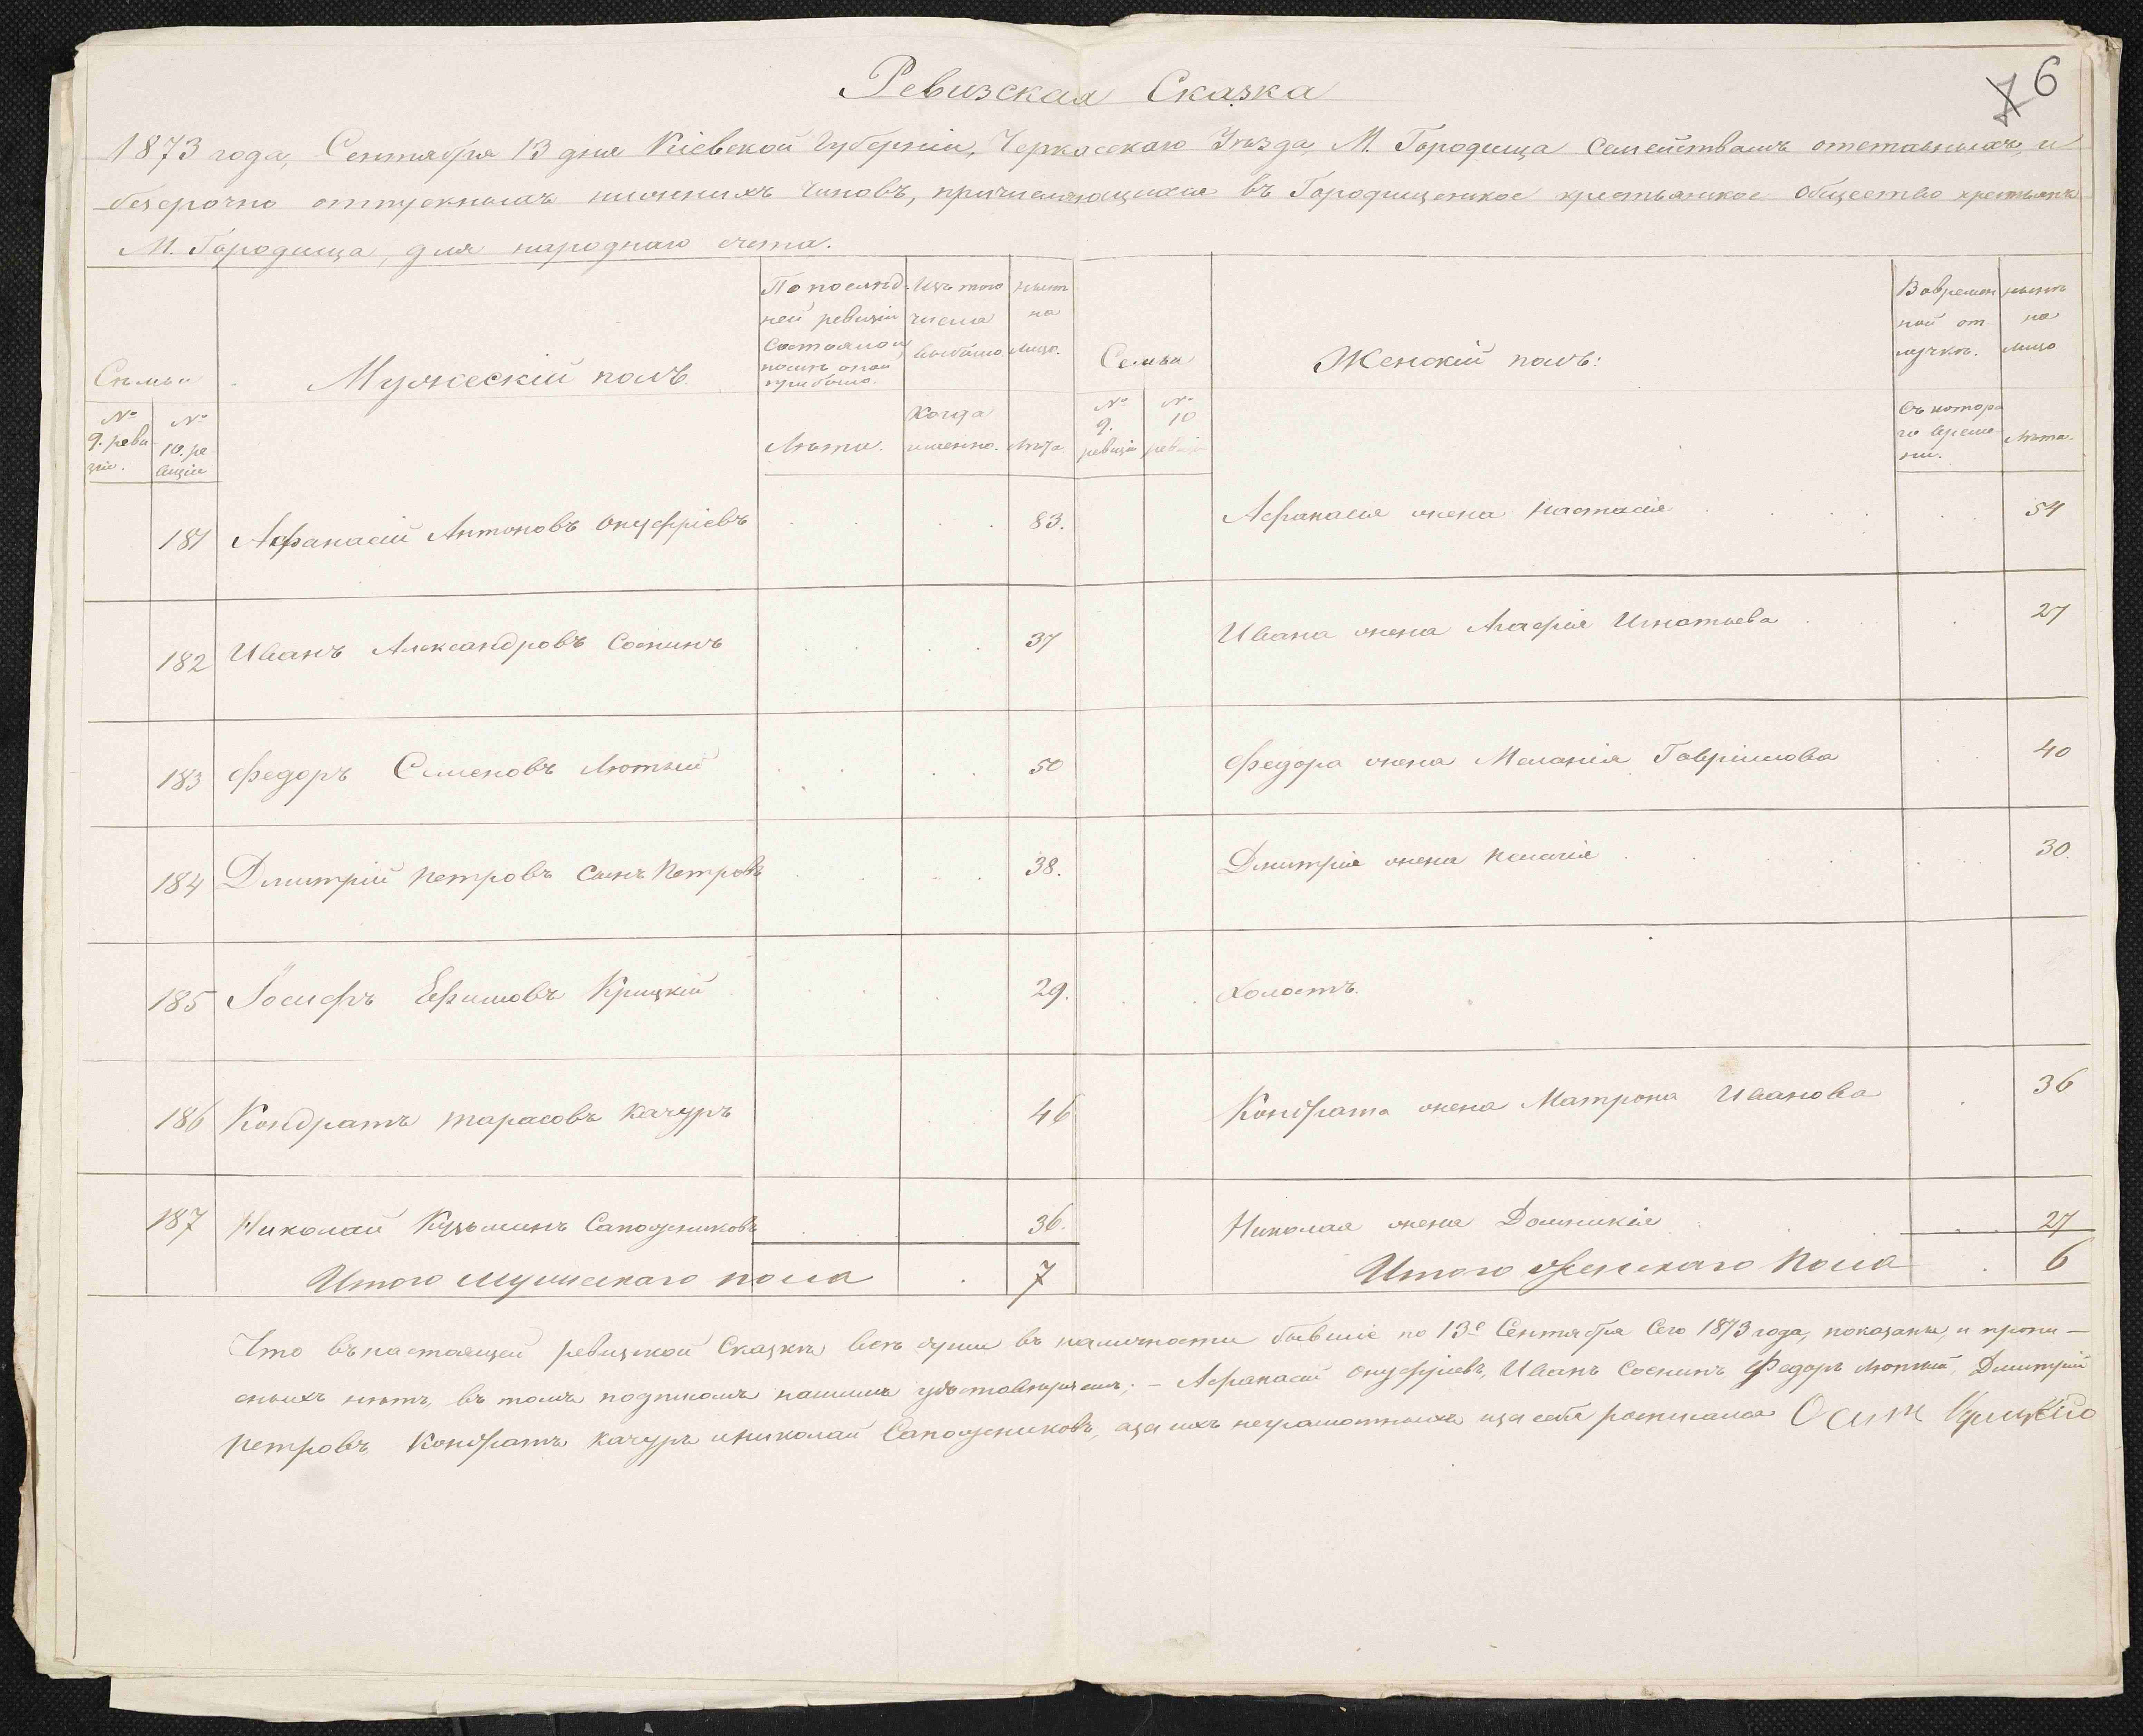 6
7
Ревизская Сказка
1873 года, Сентября 13 дня Кіевской Губерніи, Черкасскаго Уѣзда, М. Городища Семействамъ отставныхъ, и
безсрочно отпускныхъ нижнихъ Чиновъ, причисляющихся въ Городищенское крестьянское Общество крестьянъ
М. Городища, для народнаго счета.
Семьи
№ 9. ревизіи.
№ 10. ревизіи
Мужескій полъ
По послѣд-
ней ревизіи
Состояло и
послѣ оной
прибыло.
Лѣта.
Изъ того
числа
выбыло.
Когда
именно.
Нынѣ
на
лицо.
Лѣта
Семьи
№ 9. ревизіи
№ 10 ревизіи
Женскій полъ:
Во времен
ной от
лучкѣ.
Съ котора
го време
ни.
нынѣ
на
лицо
Лѣта.
181 Афанасій Антоновъ Онуфріевъ 83. Афанасія жена Настасія 54
182 Иванъ Александровъ Соснинъ 37 Ивана жена Агафія Игнатьева 27
183 Федоръ Семеновъ Лютый 50 Федора жена Меланія Гавріилова 40
184 Дмитрій Петровъ сынъ Петровъ 38. Дмитрія жена Пелагія 30.
185 Іосифъ Ефимовъ Крицкій 29. Холостъ.
186 Кондратъ Тарасовъ Качуръ 46 Кондрата жена Матрона Иванова 36
187 Николай Кузьминъ Сапожниковъ 36. Николая жена Домникія 27
Итого мужескаго пола 7 Итого Женскаго Пола 6
Что въ настоящей ревизской Сказкѣ всѣ души въ наличности бывшіе по 13е Сентября Сего 1873 года, показаны, и пропи-
сныхъ нѣтъ, въ томъ подписомъ нашимъ удостовѣряемъ; - Афанасій Онуфріевъ, Иванъ Соснинъ Федоръ Лютый, Дмитрій
Петровъ, Кондратъ Качуръ и Николай Сапожниковъ, а за ихъ неграмотныхъ и за себя росписался Осип Крицкій